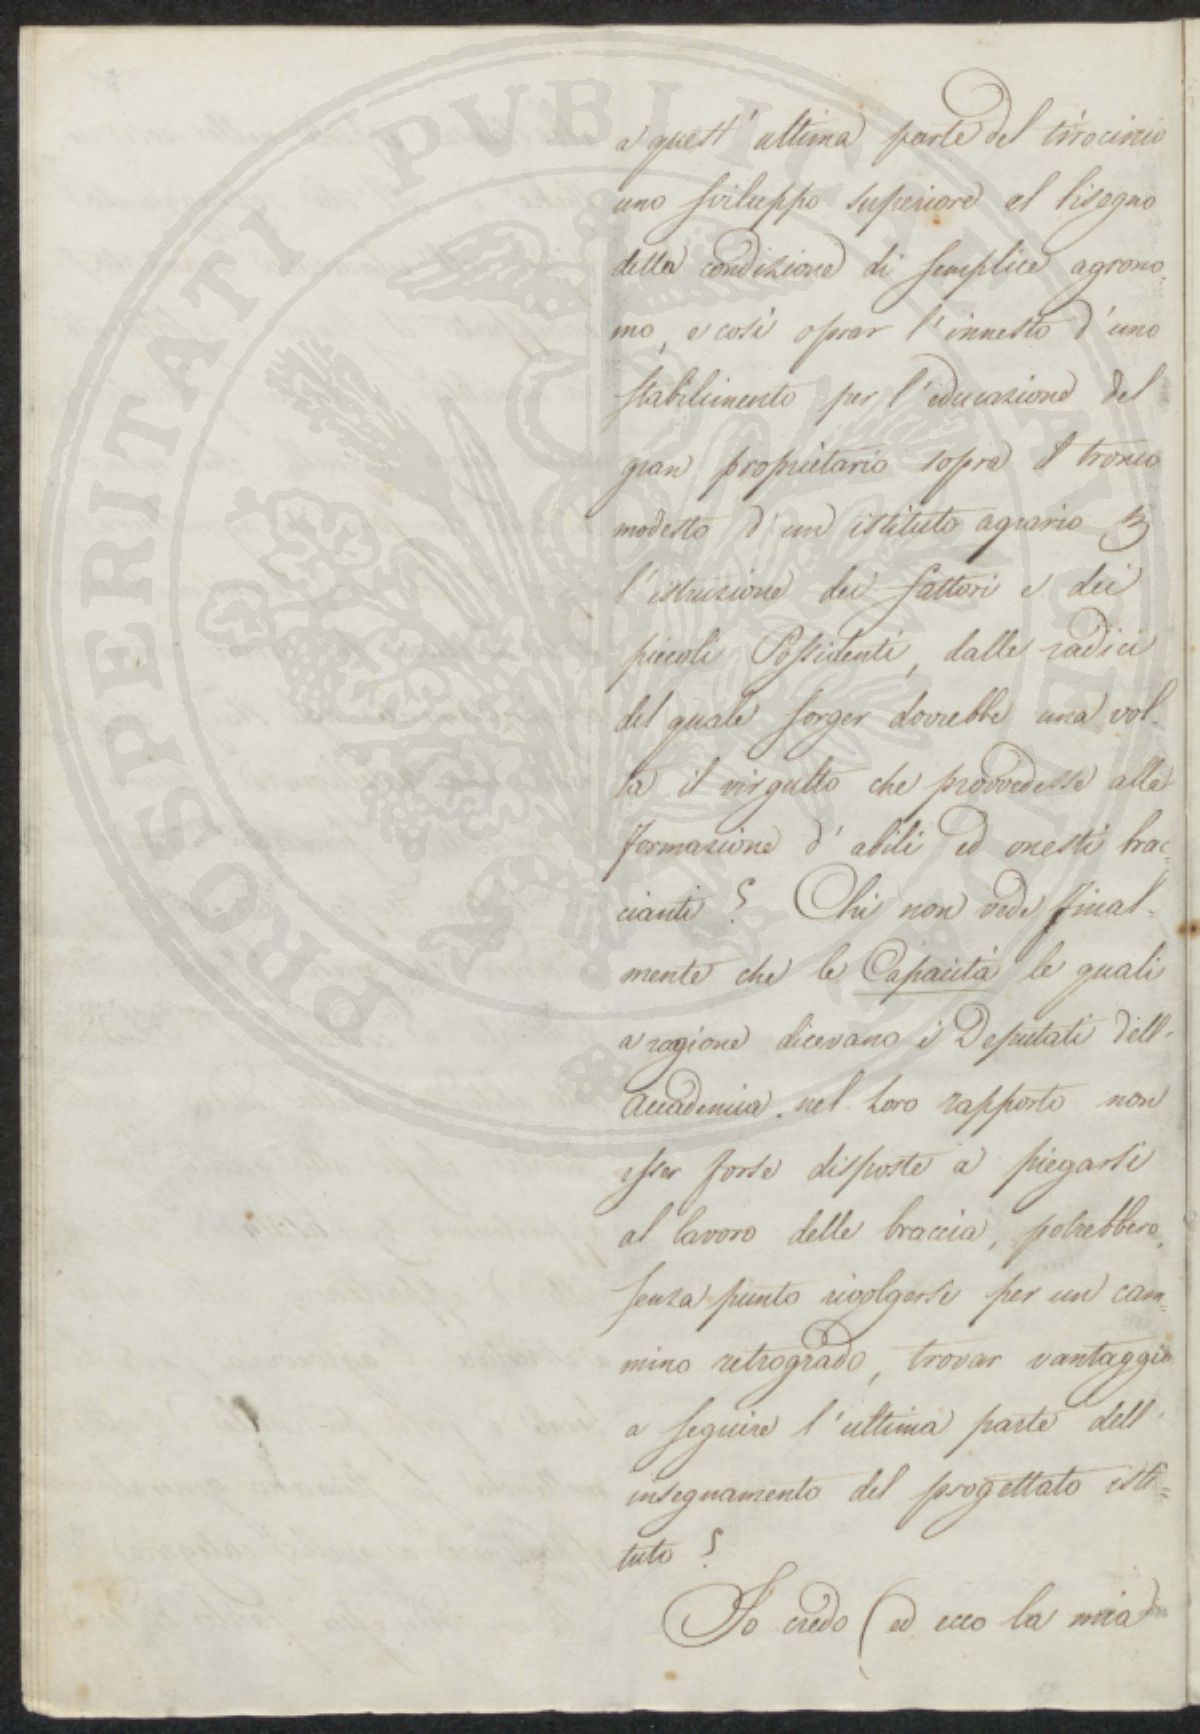 a quest' ultima parte del tirocinio
uno sviluppo superiore al bisogno
della condizione di semplice agrono-
mo, e così oprar l'innesto d'uno
stabilimento per l'educazione del
gran proprietario sopra il tronco
modesto d'un istituto agrario p
l'istruzione dei fattori e dei
piccoli Possidenti, dalle radici
del quale sorger dovrebbe una vol-
ta il virgulto che provvedesse alla
formazione d'abili ed onesti brac=
cianti? Chi non vede final-
mente che le Capacità le quali
a ragione dicevano i Deputati dell-
Accademia nel loro rapporto non
esser forse disposte a piegarsi
al lavoro delle braccia, potrebbero,
senza punto rivolgersi per un cam=
mino retrogrado, trovar vantaggio
a seguire l'ultima parte dell'
insegnamento del progettato isti=
tuto?
Io credo (ed ecco la mia
PROSPERITATI PVBLICAE AVGENDAE